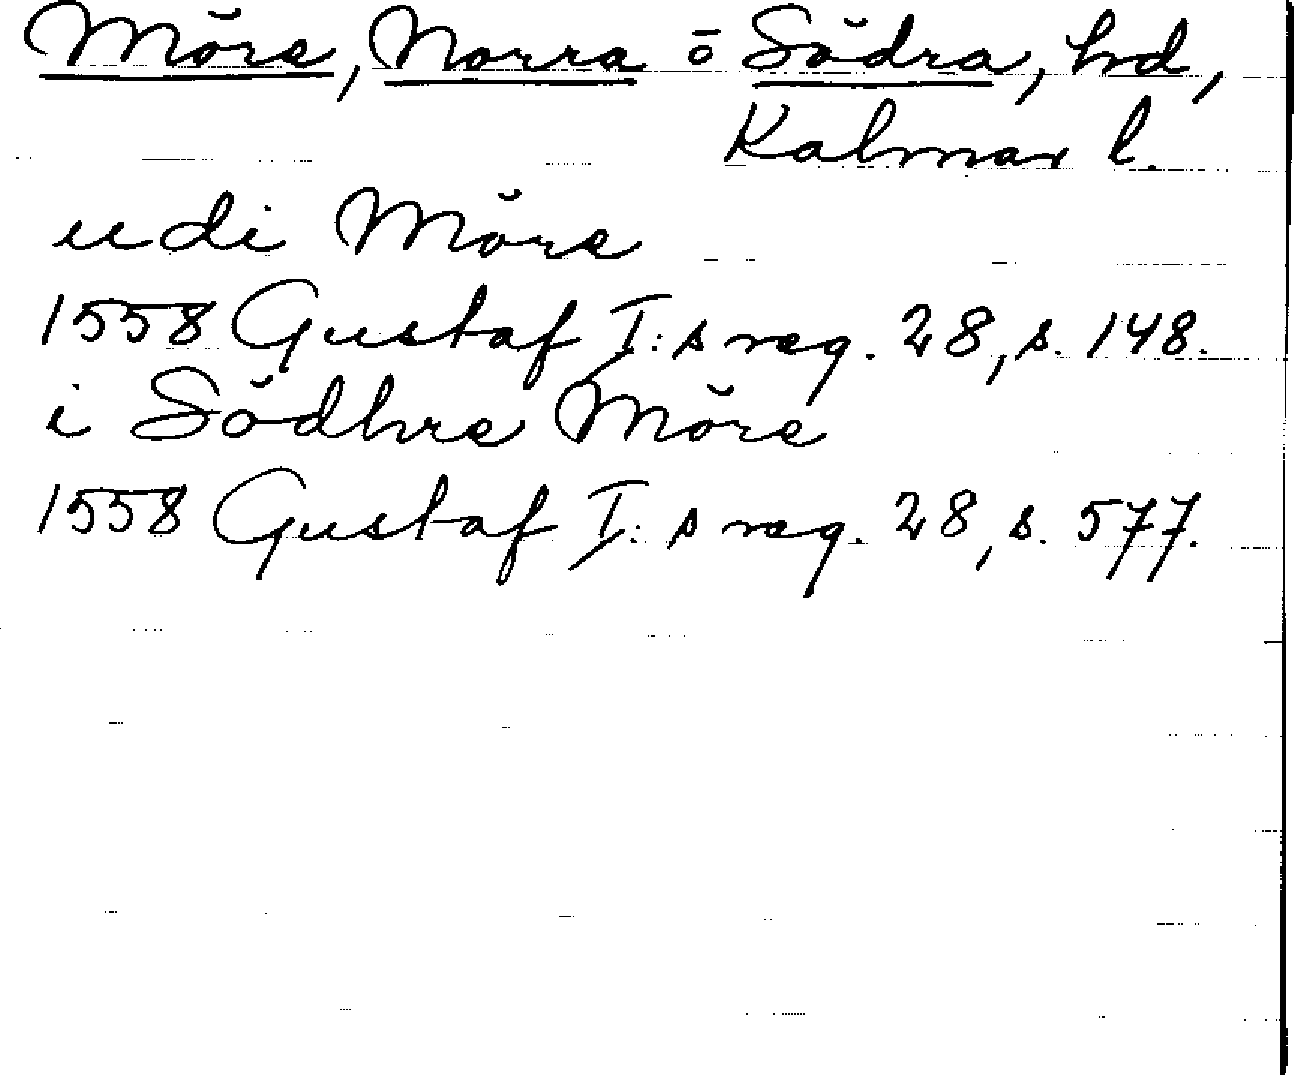 Möre, Norra o Södra, hd,
Kalmar l.
udi Möre
1558 Gustaf I:s reg. 28, s. 148.
i Södhre Möre
1558 Gustaf I:s reg. 28, s. 577.